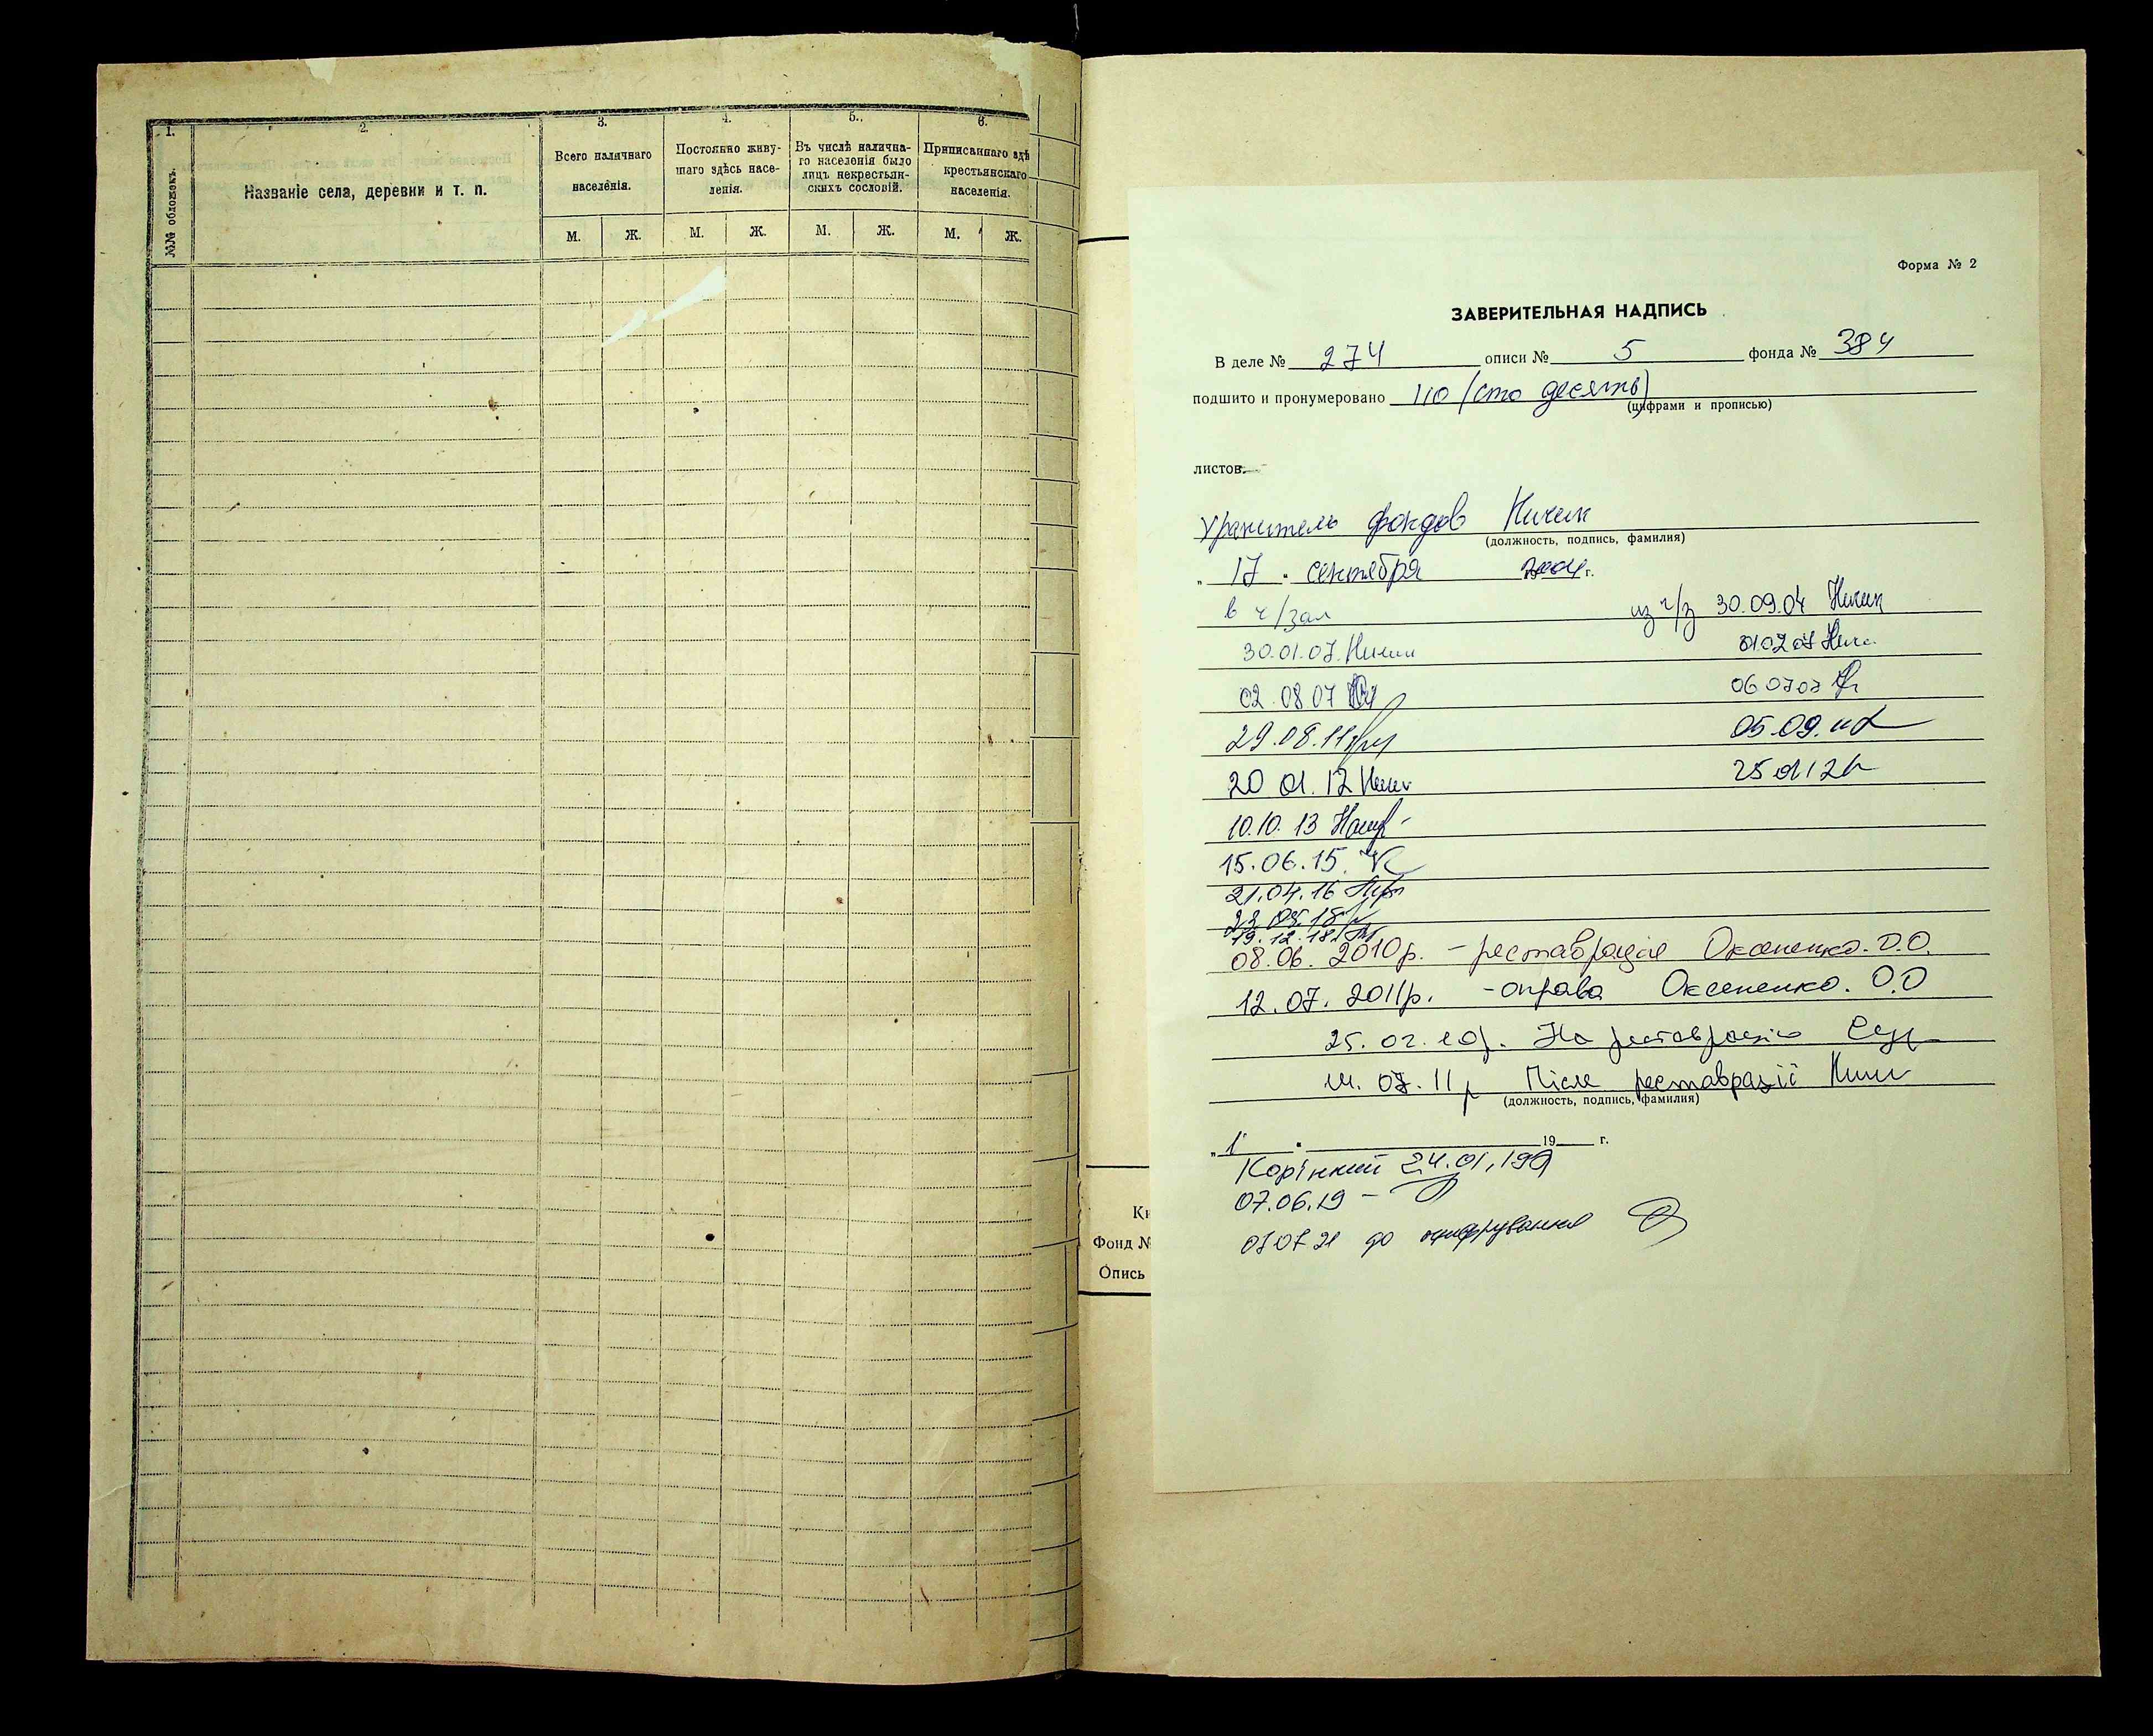 1.
2.
3.
4.
5.
6.
№№ обложекъ.
Названіе села, деревни и т. п.
Всего наличнаго
населенія.
Постоянно живу-
щаго здѣсь насе-
ленія.
Въ числѣ налична-
го населенія было
лицъ некрестьян-
скихъ сословій.
Приписаннаго здѣ
крестьянскаго
населенія.
М. Ж. М. Ж. М. Ж. М. Ж.
Форма № 2
ЗАВЕРИТЕЛЬНАЯ НАДПИСЬ
В деле № 274 описи № 5 фонда № 384
подшито и пронумеровано 110 (сто десять)
(цифрами и прописью)
листов.
Хранитель фондов Ничик
(должность, подпись, фамилия)
„ 17 " сентября 2004 г.
в ч/зал из ч/з 30.09.04 Ничик
30.01.07 Ничик 01.02.07
02.08.07
29.08.11 05.09.11
20.01.12 25.01.12
10.10.13
15.06.15
21.04.16
19.12.18
08.06.2010р. - реставрація Оксененко. О.О.
12.07.2011р. - оправа Оксененко. О.О
На реставрацію
07.11р Після реставрації
(должность, подпись, фамилия)
„ 1 " 19 г.
24.01.19
07.06.19 -
07.07.21 до оцифрування
Фонд №
Опись